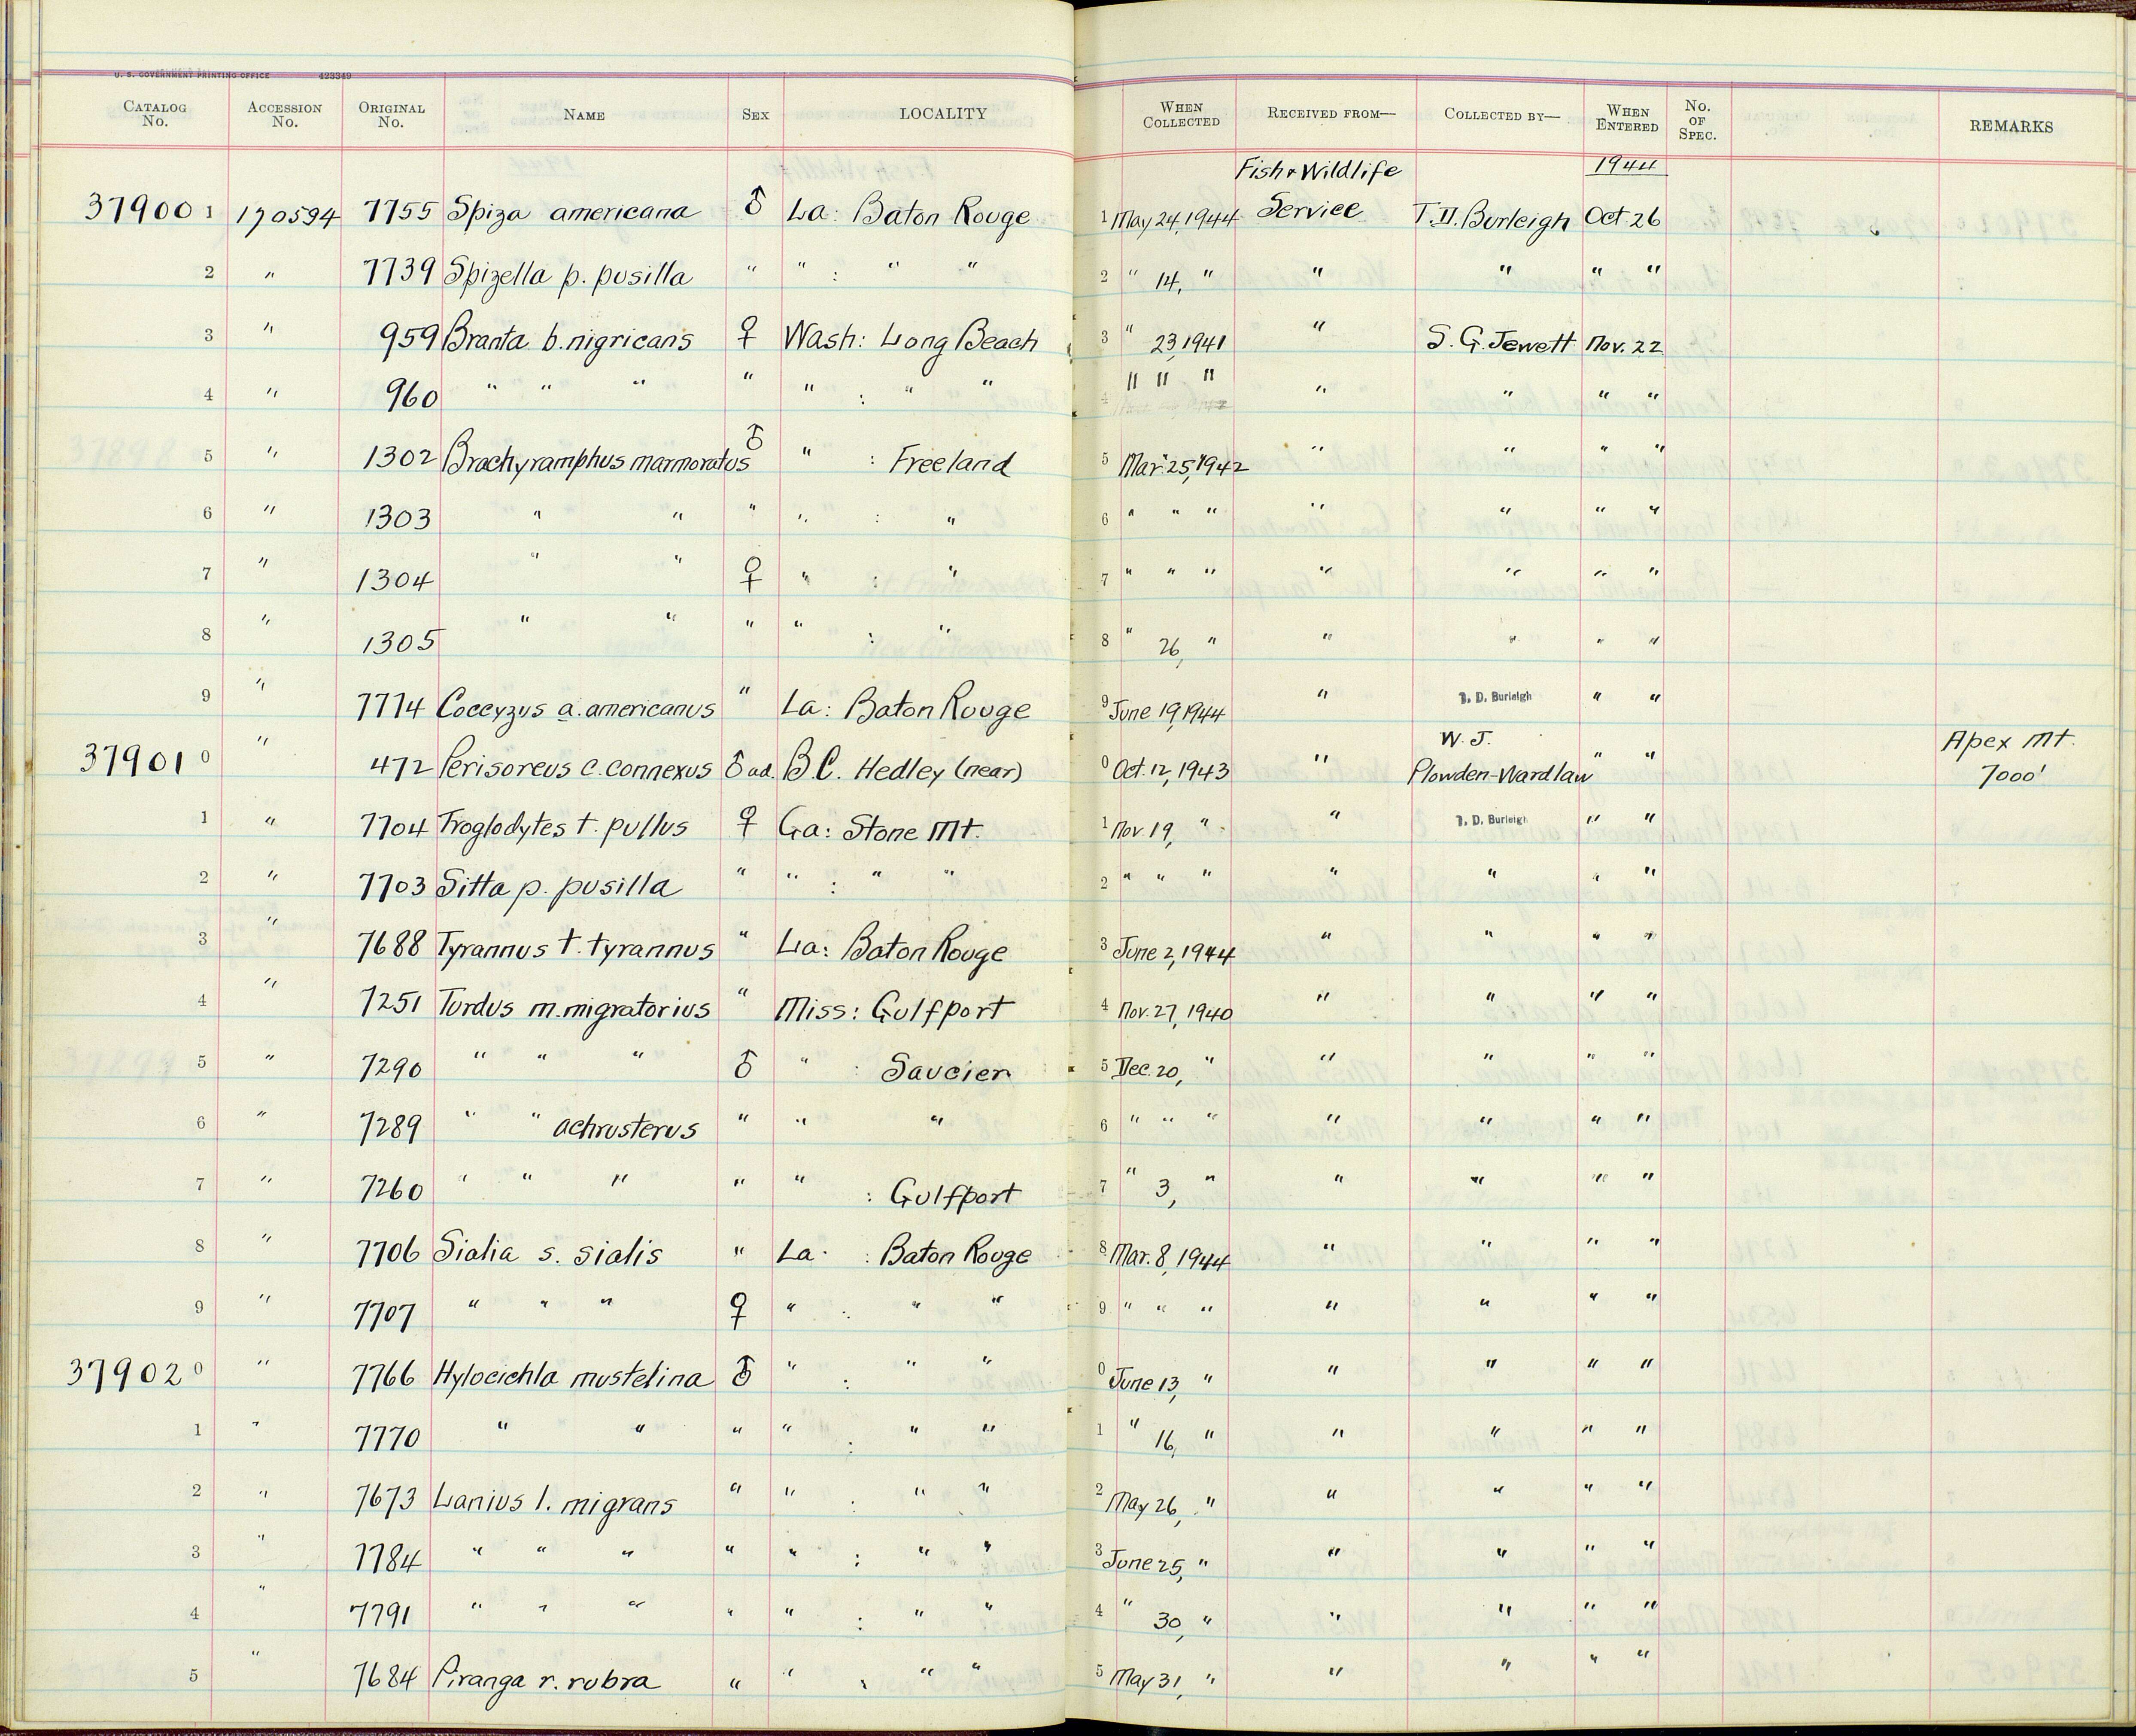 U. S. GOVERNMENT PRINTING OFFICE 423349
CATALOG No. ACCESSION No. ORIGINAL No. NAME SEX LOCALITY WHEN COLLECTED RECEIVED FROM— COLLECTED BY— WHEN ENTERED No. OF SPEC. REMARKS
Fish & Wildlife 1944
37900 1 170594 7755 Spiza americana ♂ La: Baton Rouge 1 May 24, 1944 Service T. D. Burleigh Oct 26
2 " 7739 Spizella p. pusilla " " : " " 2 " 14, " " " " "
3 " 959 Branta b. nigricans ♀ Wash: Long Beach 3 " 23, 1941 " S. G. Jewett Nov. 22
4 " 960 " " " " " : " " 4 " " " " " " "
5 " 1302 Brachyramphus marmoratus ♂ " : Freeland 5 Mar. 25, 1942 " " " "
6 " 1303 " " " " : " 6 " " " " " " "
7 " 1304 " " ♀ " : " 7 " " " " " " "
8 " 1305 " " " " : " 8 " 26, " " " " "
9 " 7774 Coccyzus a. americanus " La: Baton Rouge 9 June 19, 1944 " T. D. Burleigh " "
37901 0 " 472 Perisoreus c. connexus ♂ ad. B.C. Hedley (near) 0 Oct. 12, 1943 " W. J. Plowden-Wardlaw " " Apex Mt. 7000'
1 " 7704 Troglodytes t. pullus ♀ Ga: Stone Mt. 1 Nov. 19, " " T. D. Burleigh " "
2 " 7703 Sitta p. pusilla " " : " " 2 " " " " " " "
3 " 7688 Tyrannus t. tyrannus " La: Baton Rouge 3 June 2, 1944 " " " "
4 " 7251 Turdus m. migratorius " Miss: Gulfport 4 Nov. 27, 1940 " " " "
5 " 7290 " " " ♂ " : Saucier 5 Dec. 20, " " " " "
6 " 7289 " " achrusterus " " " 6 " " " " " " "
7 " 7260 " " " " " : Gulfport 7 " 3, " " " " "
8 " 7706 Sialia s. sialis " La. : Baton Rouge 8 Mar. 8, 1944 " " " "
9 " 7707 " " " ♀ " : " " 9 " " " " " " "
37902 0 " 7766 Hylocichla mustelina ♂ " : " " 0 June 13, " " " " "
1 " 7770 " " " " : " " 1 " 16, " " " " "
2 " 7673 Lanius l. migrans " " : " " 2 May 26, " " " " "
3 " 7784 " " " " " : " " 3 June 25, " " " " "
4 " 7791 " " " " " : " " 4 " 30, " " " " "
5 " 7684 Piranga r. rubra " " : " " 5 May 31, " " " " "